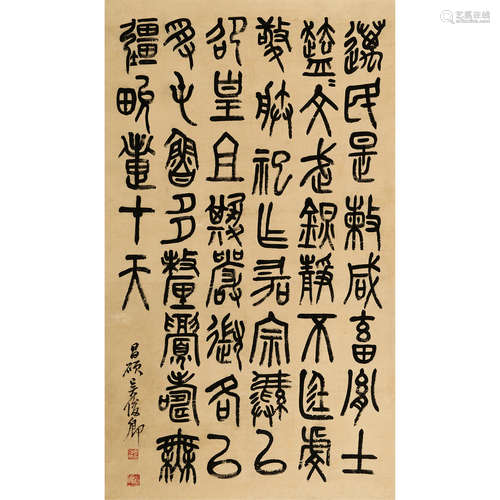 萬民是敕咸畜胤士
文武鎮靜不廷虔
敬朕祀乍宗彝以
卲皇且其嚴各以
受屯魯多釐眉壽無
疆畯疐才天
昌碩吳俊卿
艺狐在线